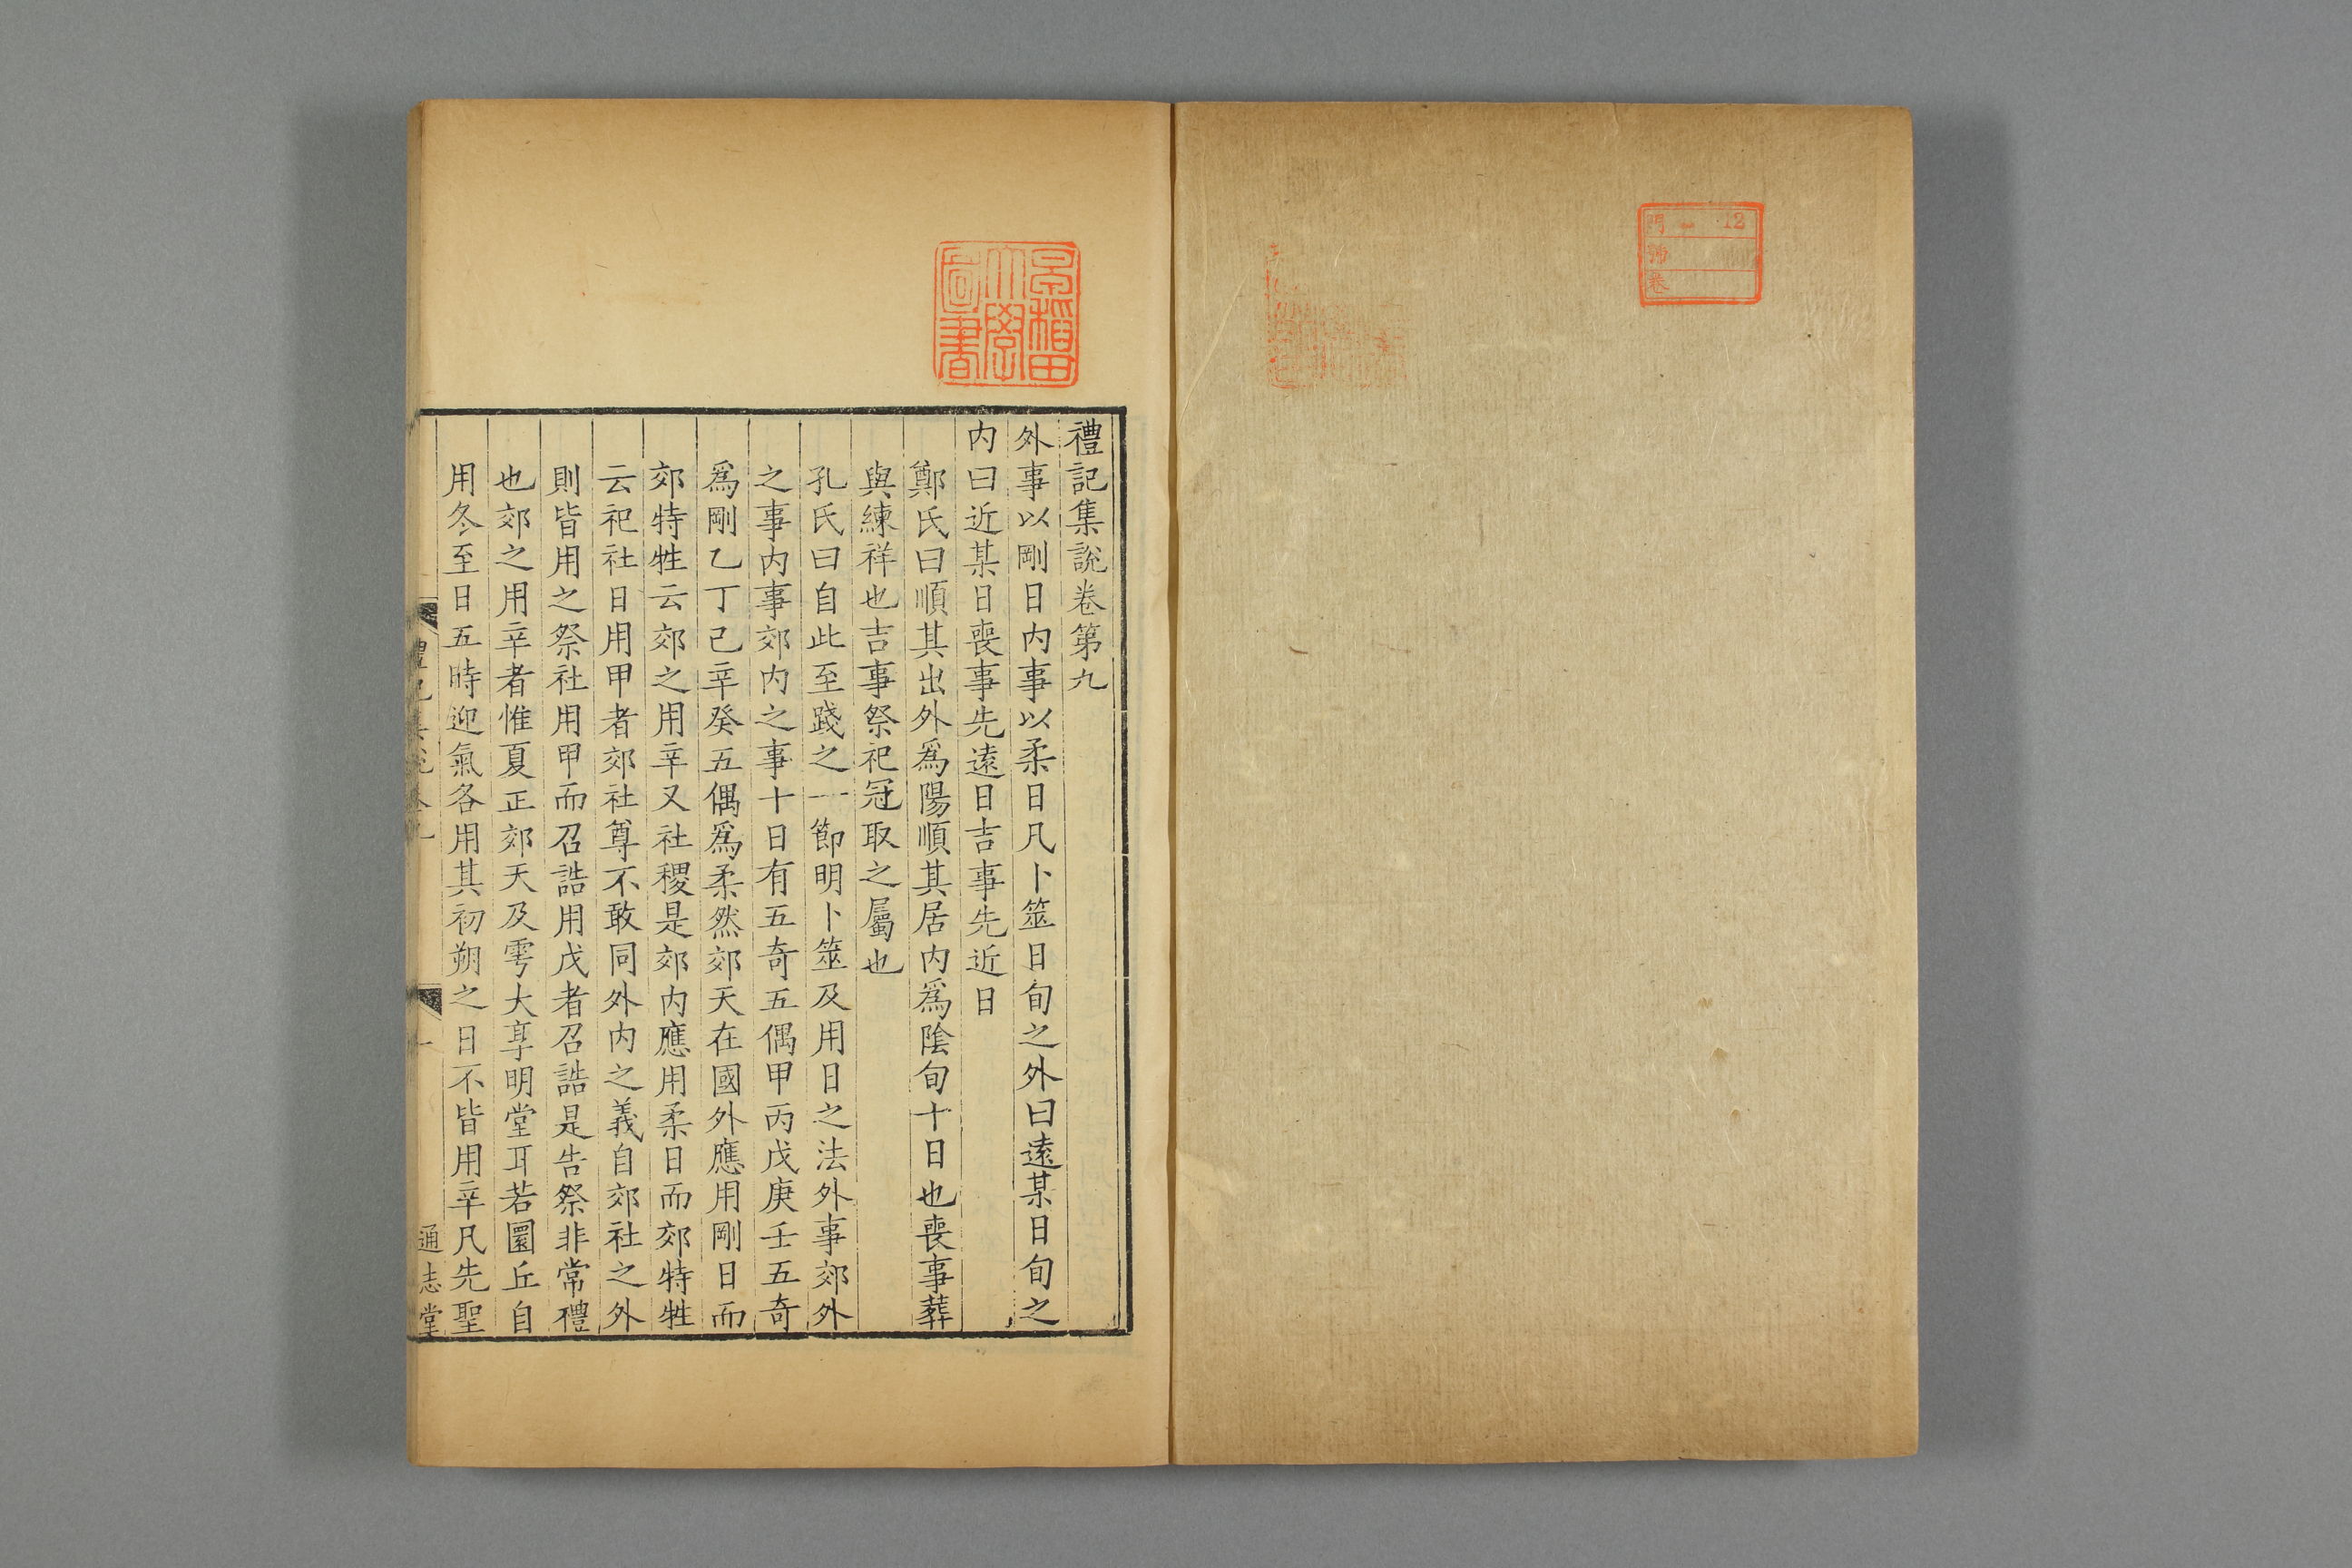 門 一 12
號
卷
早稻田
大學
圖書
禮記集說卷第九
外事以剛日內事以柔日凡卜筮日旬之外曰遠某日旬之
內曰近某日喪事先遠日吉事先近日
鄭氏曰順其出外爲陽順其居內爲陰旬十日也喪事葬
與練祥也吉事祭祀冠取之屬也
孔氏曰自此至踐之一節明卜筮及用日之法外事郊外
之事內事郊內之事十日有五奇五偶甲丙戊庚壬五奇
爲剛乙丁己辛癸五偶爲柔然郊天在國外應用剛日而
郊特牲云郊之用辛又社稷是郊內應用柔日而郊特牲
云祀社日用甲者郊社尊不敢同外內之義自郊社之外
則皆用之祭社用甲而召誥用戊者召誥是告祭非常禮
也郊之用辛者惟夏正郊天及雩大享明堂耳若圜丘自
用冬至日五時迎氣各用其初朔之日不皆用辛凡先聖
禮記集說卷九 一 通志堂